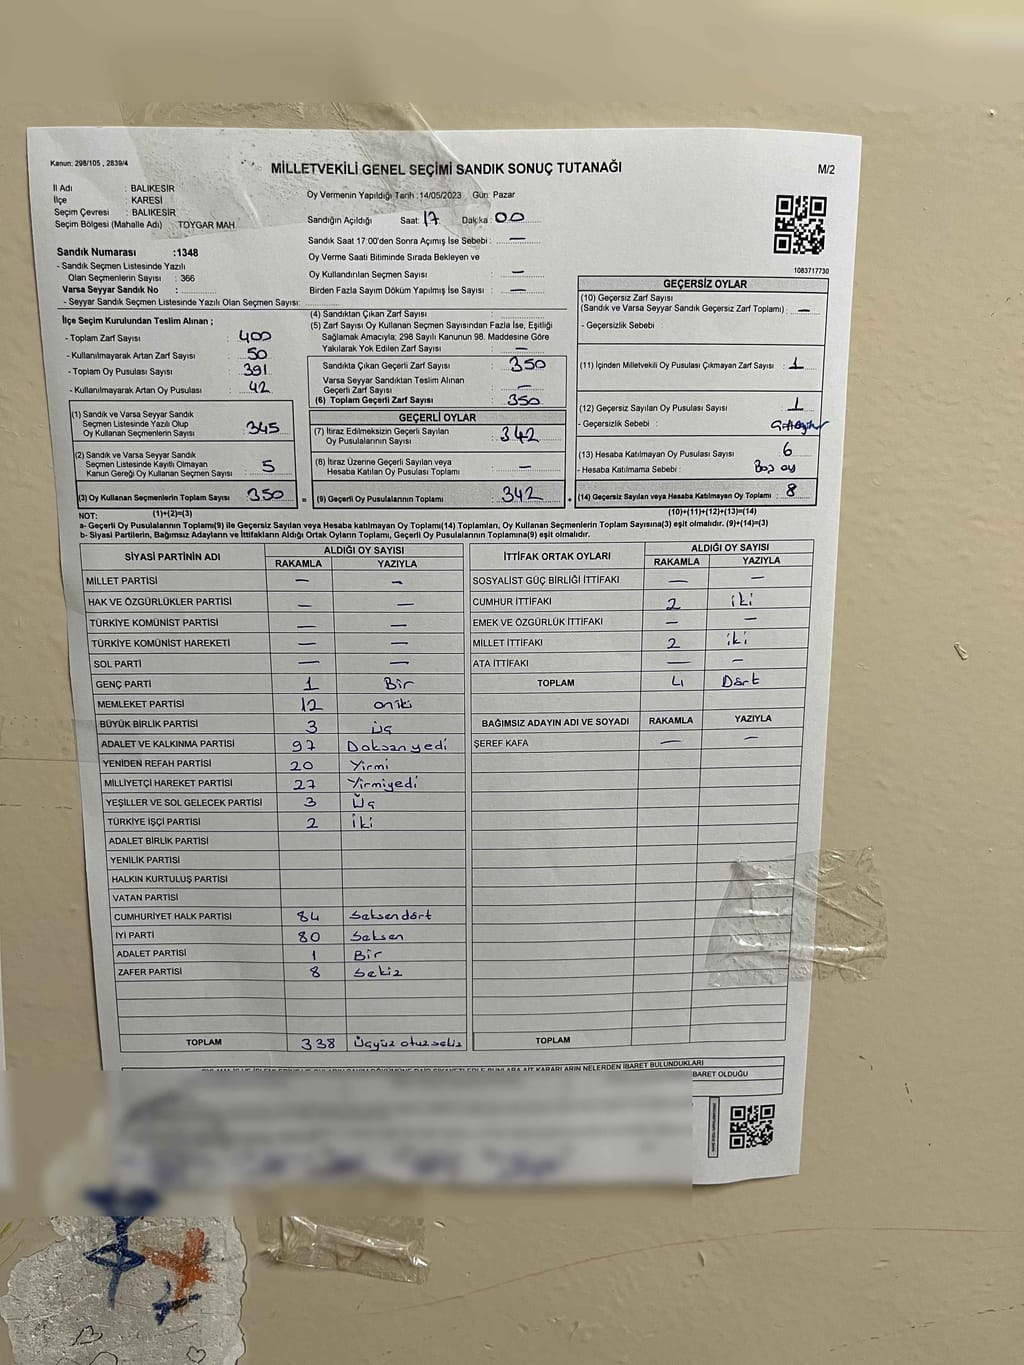 Kanun: 298/105 , 2839/4
MİLLETVEKİLİ GENEL SEÇİMİ SANDIK SONUÇ TUTANAĞI
M/2
İl Adı : BALIKESİR
İlçe : KARESİ
Seçim Çevresi : BALIKESİR
Seçim Bölgesi (Mahalle Adı) TOYGAR MAH.
Oy Vermenin Yapıldığı Tarih : 14/05/2023 Gün: Pazar
Sandığın Açıldığı Saat: 17 Dakika: 00
Sandık Saat 17:00'den Sonra Açımış İse Sebebi : —
Oy Verme Saati Bitiminde Sırada Bekleyen ve
Oy Kullandırılan Seçmen Sayısı : —
Birden Fazla Sayım Döküm Yapılmış İse Sayısı : —
1083717730
Sandık Numarası :1348
- Sandık Seçmen Listesinde Yazılı
Olan Seçmenlerin Sayısı : 366
Varsa Seyyar Sandık No :
- Seyyar Sandık Seçmen Listesinde Yazılı Olan Seçmen Sayısı:
İlçe Seçim Kurulundan Teslim Alınan ;
- Toplam Zarf Sayısı : 400
- Kullanılmayarak Artan Zarf Sayısı : 50
- Toplam Oy Pusulası Sayısı : 391
- Kullanılmayarak Artan Oy Pusulası : 42
(1) Sandık ve Varsa Seyyar Sandık
Seçmen Listesinde Yazılı Olup
Oy Kullanan Seçmenlerin Sayısı : 345
(2) Sandık ve Varsa Seyyar Sandık
Seçmen Listesinde Kayıtlı Olmayan
Kanun Gereği Oy Kullanan Seçmen Sayısı : 5
(3) Oy Kullanan Seçmenlerin Toplam Sayısı : 350
(1)+(2)=(3)
(4) Sandıktan Çıkan Zarf Sayısı :
(5) Zarf Sayısı Oy Kullanan Seçmen Sayısından Fazla İse, Eşitliği
Sağlamak Amacıyla; 298 Sayılı Kanunun 98. Maddesine Göre
Yakılarak Yok Edilen Zarf Sayısı : —
Sandıkta Çıkan Geçerli Zarf Sayısı : 350
Varsa Seyyar Sandıktan Teslim Alınan
Geçerli Zarf Sayısı : —
(6) Toplam Geçerli Zarf Sayısı : 350
GEÇERLİ OYLAR
(7) İtiraz Edilmeksizin Geçerli Sayılan
Oy Pusulalarının Sayısı : 342
(8) İtiraz Üzerine Geçerli Sayılan veya
Hesaba Katılan Oy Pusulası Toplamı : —
= (9) Geçerli Oy Pusulalarının Toplamı : 342 +
GEÇERSİZ OYLAR
(10) Geçersiz Zarf Sayısı
(Sandık ve Varsa Seyyar Sandık Geçersiz Zarf Toplamı) : —
- Geçersizlik Sebebi :
(11) İçinden Milletvekili Oy Pusulası Çıkmayan Zarf Sayısı : 1
(12) Geçersiz Sayılan Oy Pusulası Sayısı : 1
- Geçersizlik Sebebi :
(13) Hesaba Katılmayan Oy Pusulası Sayısı : 6
- Hesaba Katılmama Sebebi : Boş oy
(14) Geçersiz Sayılan veya Hesaba Katılmayan Oy Toplamı : 8
(10)+(11)+(12)+(13)=(14)
NOT:
a- Geçerli Oy Pusulalarının Toplamı(9) ile Geçersiz Sayılan veya Hesaba katılmayan Oy Toplamı(14) Toplamları, Oy Kullanan Seçmenlerin Toplam Sayısına(3) eşit olmalıdır. (9)+(14)=(3)
b- Siyasi Partilerin, Bağımsız Adayların ve İttifakların Aldığı Ortak Oyların Toplamı, Geçerli Oy Pusulalarının Toplamına(9) eşit olmalıdır.
SİYASİ PARTİNİN ADI ALDIĞI OY SAYISI
RAKAMLA YAZIYLA
MİLLET PARTİSİ — —
HAK VE ÖZGÜRLÜKLER PARTİSİ — —
TÜRKİYE KOMÜNİST PARTİSİ — —
TÜRKİYE KOMÜNİST HAREKETİ — —
SOL PARTİ — —
GENÇ PARTİ 1 Bir
MEMLEKET PARTİSİ 12 oniki
BÜYÜK BİRLİK PARTİSİ 3 üç
ADALET VE KALKINMA PARTİSİ 97 Doksan yedi
YENİDEN REFAH PARTİSİ 20 Yirmi
MİLLİYETÇİ HAREKET PARTİSİ 27 Yirmiyedi
YEŞİLLER VE SOL GELECEK PARTİSİ 3 Üç
TÜRKİYE İŞÇİ PARTİSİ 2 iki
ADALET BİRLİK PARTİSİ
YENİLİK PARTİSİ
HALKIN KURTULUŞ PARTİSİ
VATAN PARTİSİ
CUMHURİYET HALK PARTİSİ 84 Seksendört
İYİ PARTİ 80 Seksen
ADALET PARTİSİ 1 Bir
ZAFER PARTİSİ 8 Sekiz
TOPLAM 338 Üçyüz otuzsekiz
İTTİFAK ORTAK OYLARI ALDIĞI OY SAYISI
RAKAMLA YAZIYLA
SOSYALİST GÜÇ BİRLİĞİ İTTİFAKI — —
CUMHUR İTTİFAKI 2 iki
EMEK VE ÖZGÜRLÜK İTTİFAKI — —
MİLLET İTTİFAKI 2 iki
ATA İTTİFAKI — —
TOPLAM 4 Dört
BAĞIMSIZ ADAYIN ADI VE SOYADI RAKAMLA YAZIYLA
ŞEREF KAFA — —
TOPLAM
KARARLARIN NELERDEN İBARET BULUNDUKLARI
BARET OLDUĞU